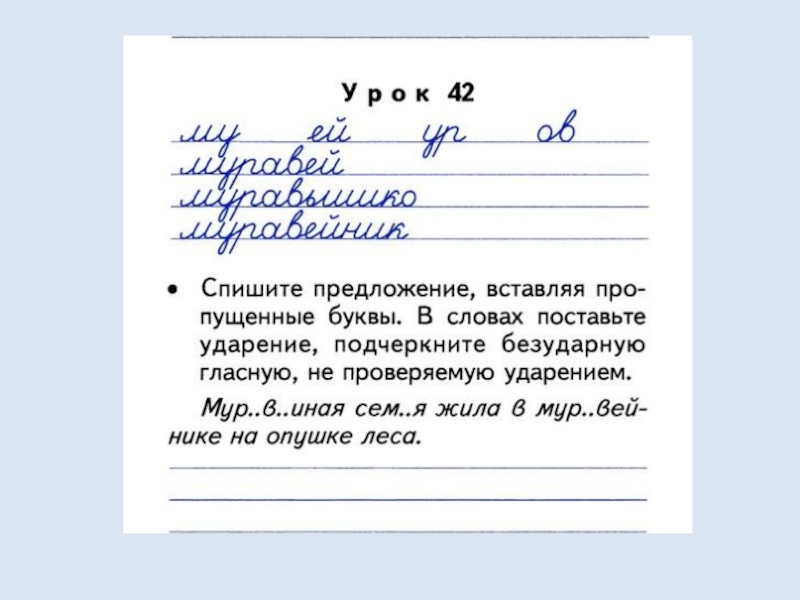 Урок 42
му ей ур ов
муравей
муравьишко
муравейник
• Спишите предложение, вставляя про-
пущенные буквы. В словах поставьте
ударение, подчеркните безударную
гласную, не проверяемую ударением.
Мур..в..иная сем..я жила в мур..вей-
нике на опушке леса.